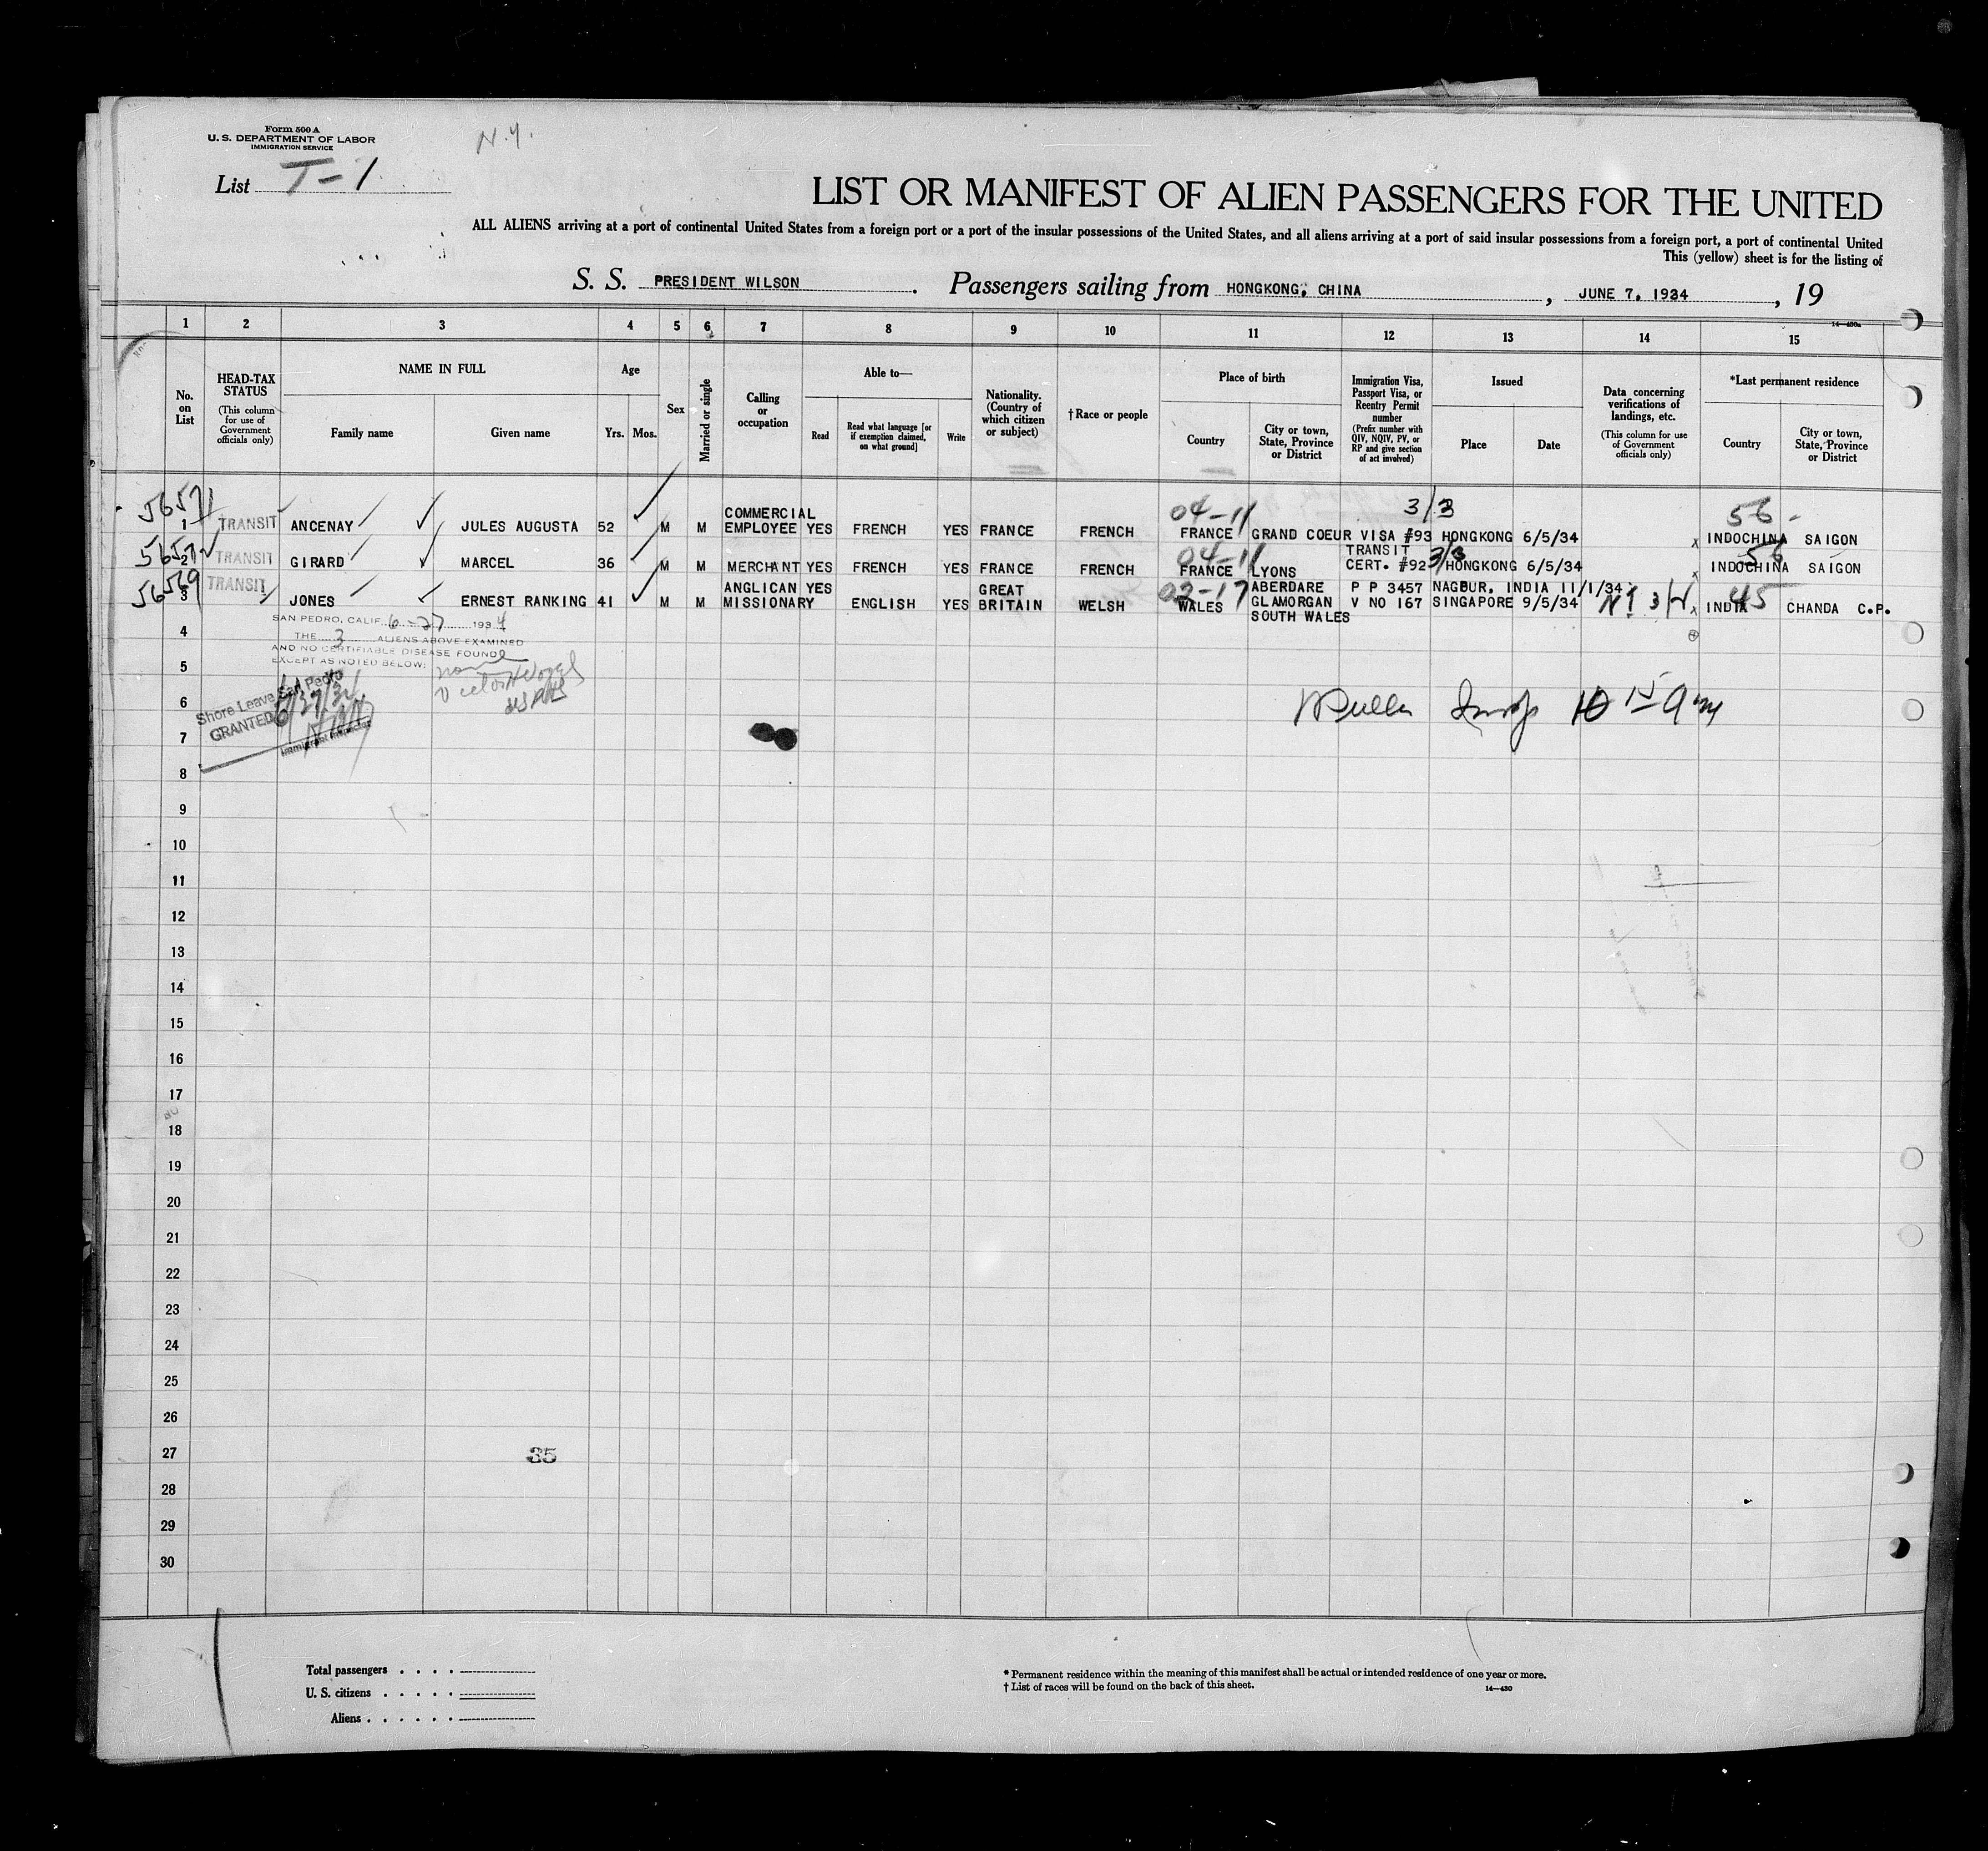 Form 500 A
U. S. DEPARTMENT OF LABOR
IMMIGRATION SERVICE
N.Y.
List T-1
LIST OR MANIFEST OF ALIEN PASSENGERS FOR THE UNITED
ALL ALIENS arriving at a port of continental United States from a foreign port or a port of the insular possessions of the United States, and all aliens arriving at a port of said insular possessions from a foreign port, a port of continental United
This (yellow) sheet is for the listing of
S. S. PRESIDENT WILSON. Passengers sailing from HONGKONG, CHINA, JUNE 7, 1934, 19
14—430a
1 2 3 4 5 6 7 8 9 10 11 12 13 14 15
No. on List
HEAD-TAX STATUS
(This column for use of Government officials only)
NAME IN FULL
Family name
Given name
Age
Yrs. Mos.
Sex
Married or single
Calling or occupation
Able to—
Read
Read what language [or if exemption claimed, on what ground]
Write
Nationality. (Country of which citizen or subject)
†Race or people
Place of birth
Country
City or town, State, Province or District
Immigration Visa, Passport Visa, or Reentry Permit number
(Prefix number with QIV, NQIV, PV, or RP and give section of act involved)
Issued
Place
Date
Data concerning verifications of landings, etc.
(This column for use of Government officials only)
*Last permanent residence
Country
City or town, State, Province or District
56571
COMMERCIAL
04-11
3/3
56-
1 TRANSIT ANCENAY JULES AUGUSTA 52 M M EMPLOYEE YES FRENCH YES FRANCE FRENCH FRANCE GRAND COEUR VISA #93 HONGKONG 6/5/34 x INDOCHINA SAIGON
04-11
TRANSIT
3/3
56
2 TRANSIT GIRARD MARCEL 36 M M MERCHANT YES FRENCH YES FRANCE FRENCH FRANCE LYONS CERT. #92 HONGKONG 6/5/34 x INDOCHINA SAIGON
56569
ANGLICAN YES GREAT 02-17 ABERDARE P P 3457 NAGBUR, INDIA 11/1/34
3 TRANSIT JONES ERNEST RANKING 41 M M MISSIONARY ENGLISH YES BRITAIN WELSH WALES GLAMORGAN V NO 167 SINGAPORE 9/5/34 x INDIA 45 CHANDA C.P.
SOUTH WALES
SAN PEDRO, CALIF. 6-27 1934
4
THE 3 ALIENS ABOVE EXAMINED
AND NO CERTIFIABLE DISEASE FOUND
EXCEPT AS NOTED BELOW:
none
5
Shore Leave San Pedro
GRANTED 6/27/34
Immigrant Inspector
6
10 15 am
7
8
9
10
11
12
13
14
15
16
17
18
19
20
21
22
23
24
25
26
27
35
28
29
30
Total passengers . . . .
U. S. citizens . . . . .
Aliens . . . . . .
* Permanent residence within the meaning of this manifest shall be actual or intended residence of one year or more.
† List of races will be found on the back of this sheet.
14—430